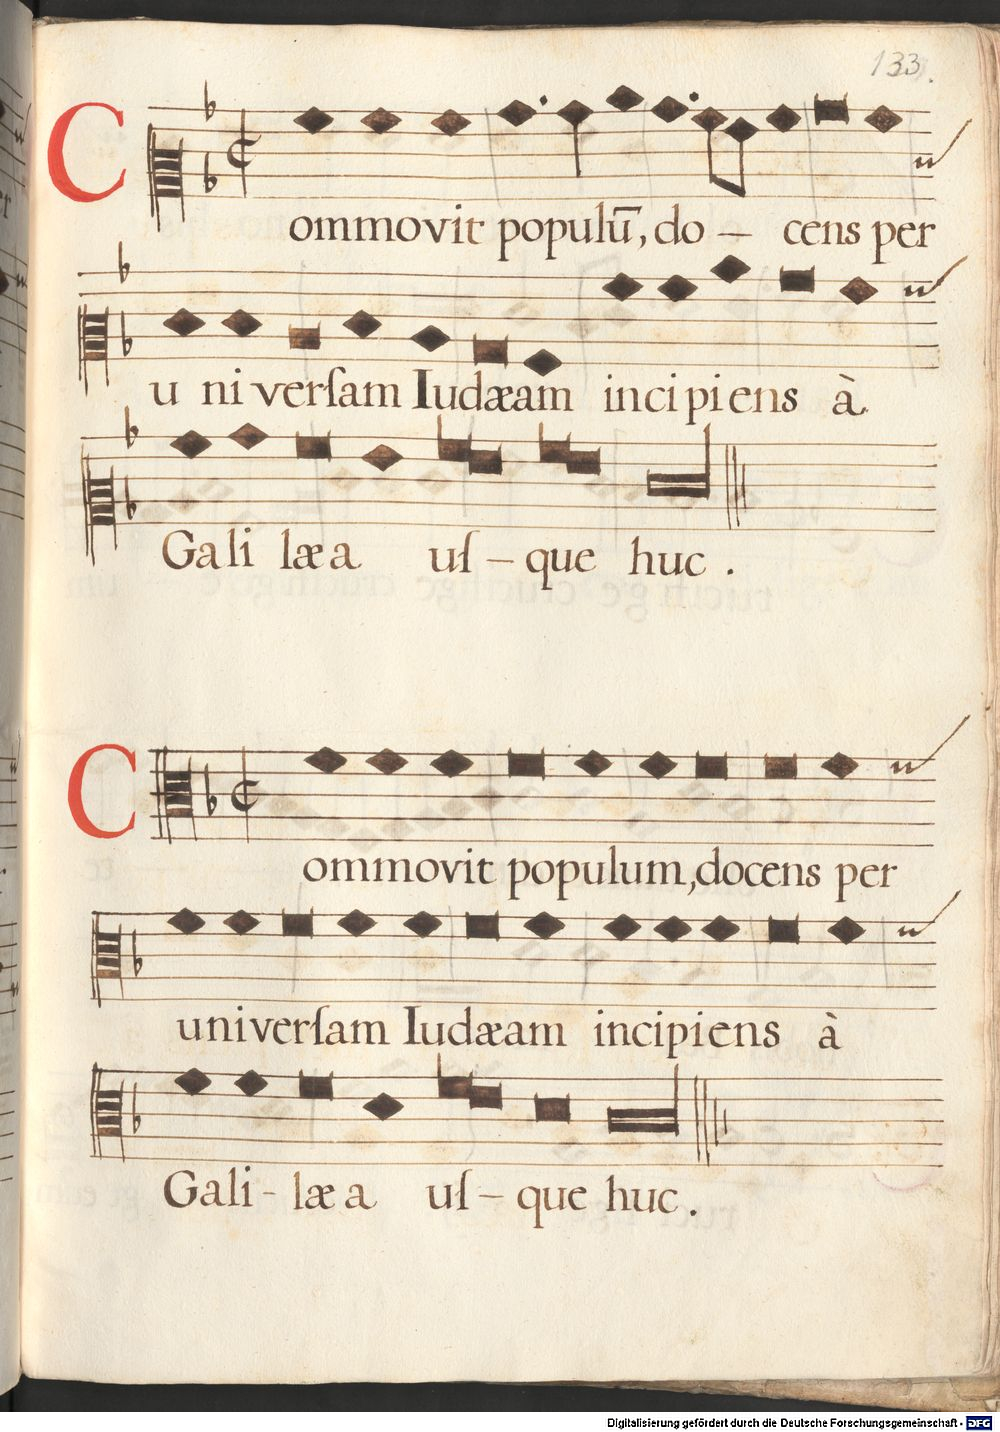 133.
Commovit populū, do – cens per
u ni verſam Iudæam incipiens à
Gali læa uſ – que huc .
Commovit populum, docens per
univerſam Iudæam incipiens à
Gali - læa uſ – que huc .
Digitalisierung gefördert durch die Deutsche Forschungsgemeinschaft - DFG